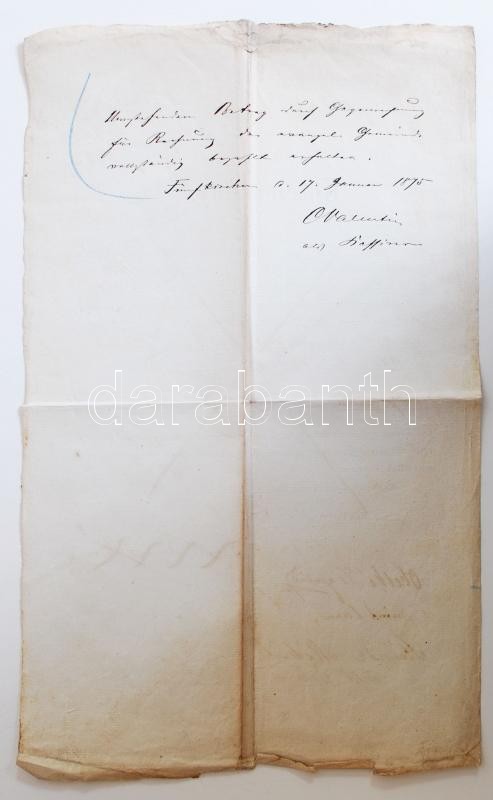 Umstehenden Betrag durch Gegenrechnung
für Rechnung der evangel. Gemeinde
vollständig bezahlt erhalten.
Fünfkirchen d. 17. Januar 1875
CValentin
als Kassirer
darabanth